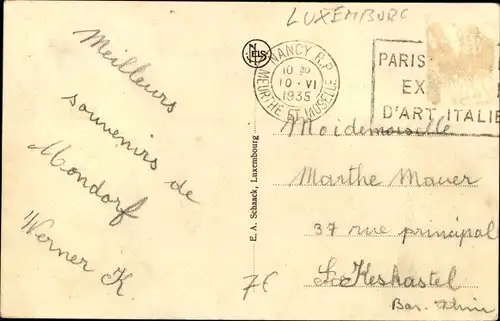 LUXEMBURG
NELS
NANCY R.P.
10 30
10 · VI
1935
MEURTHE ET MOSELLE
PARIS
EX
D'ART ITALIE
Meilleurs
souvenirs de
Mondorf
Werner K
E. A. Schaack, Luxembourg
Moidemoiselle
Marthe Mauer
37 rue principal
Keskastel
Bas. Rhin
7€